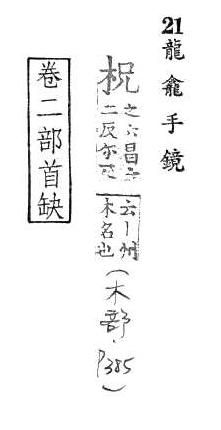 21龍龕手鏡
柷 之六昌六二反尔
云丨州木名也
(木部·P385)
卷二部首缺